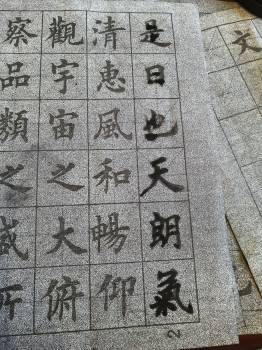 是日也天朗氣
清惠風和暢仰
觀宇宙之大俯
察品類之盛所
2
文